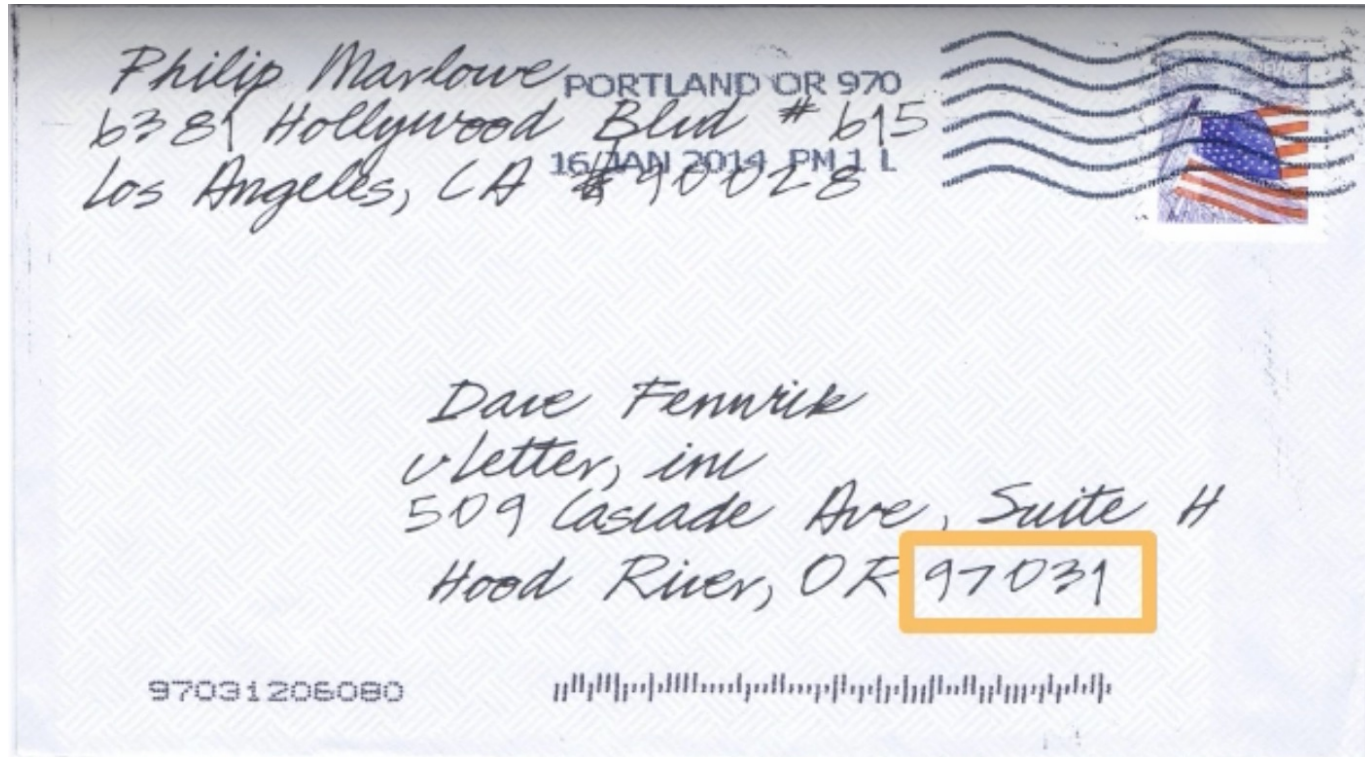 Philip Marlowe
6381 Hollywood Blvd # 615
Los Angeles, CA #90028
PORTLAND OR 970
16 JAN 2014 PM 1 L
Dave Fennrick
vLetter, inc
509 Cascade Ave, Suite H
Hood River, OR 97031
97031206080